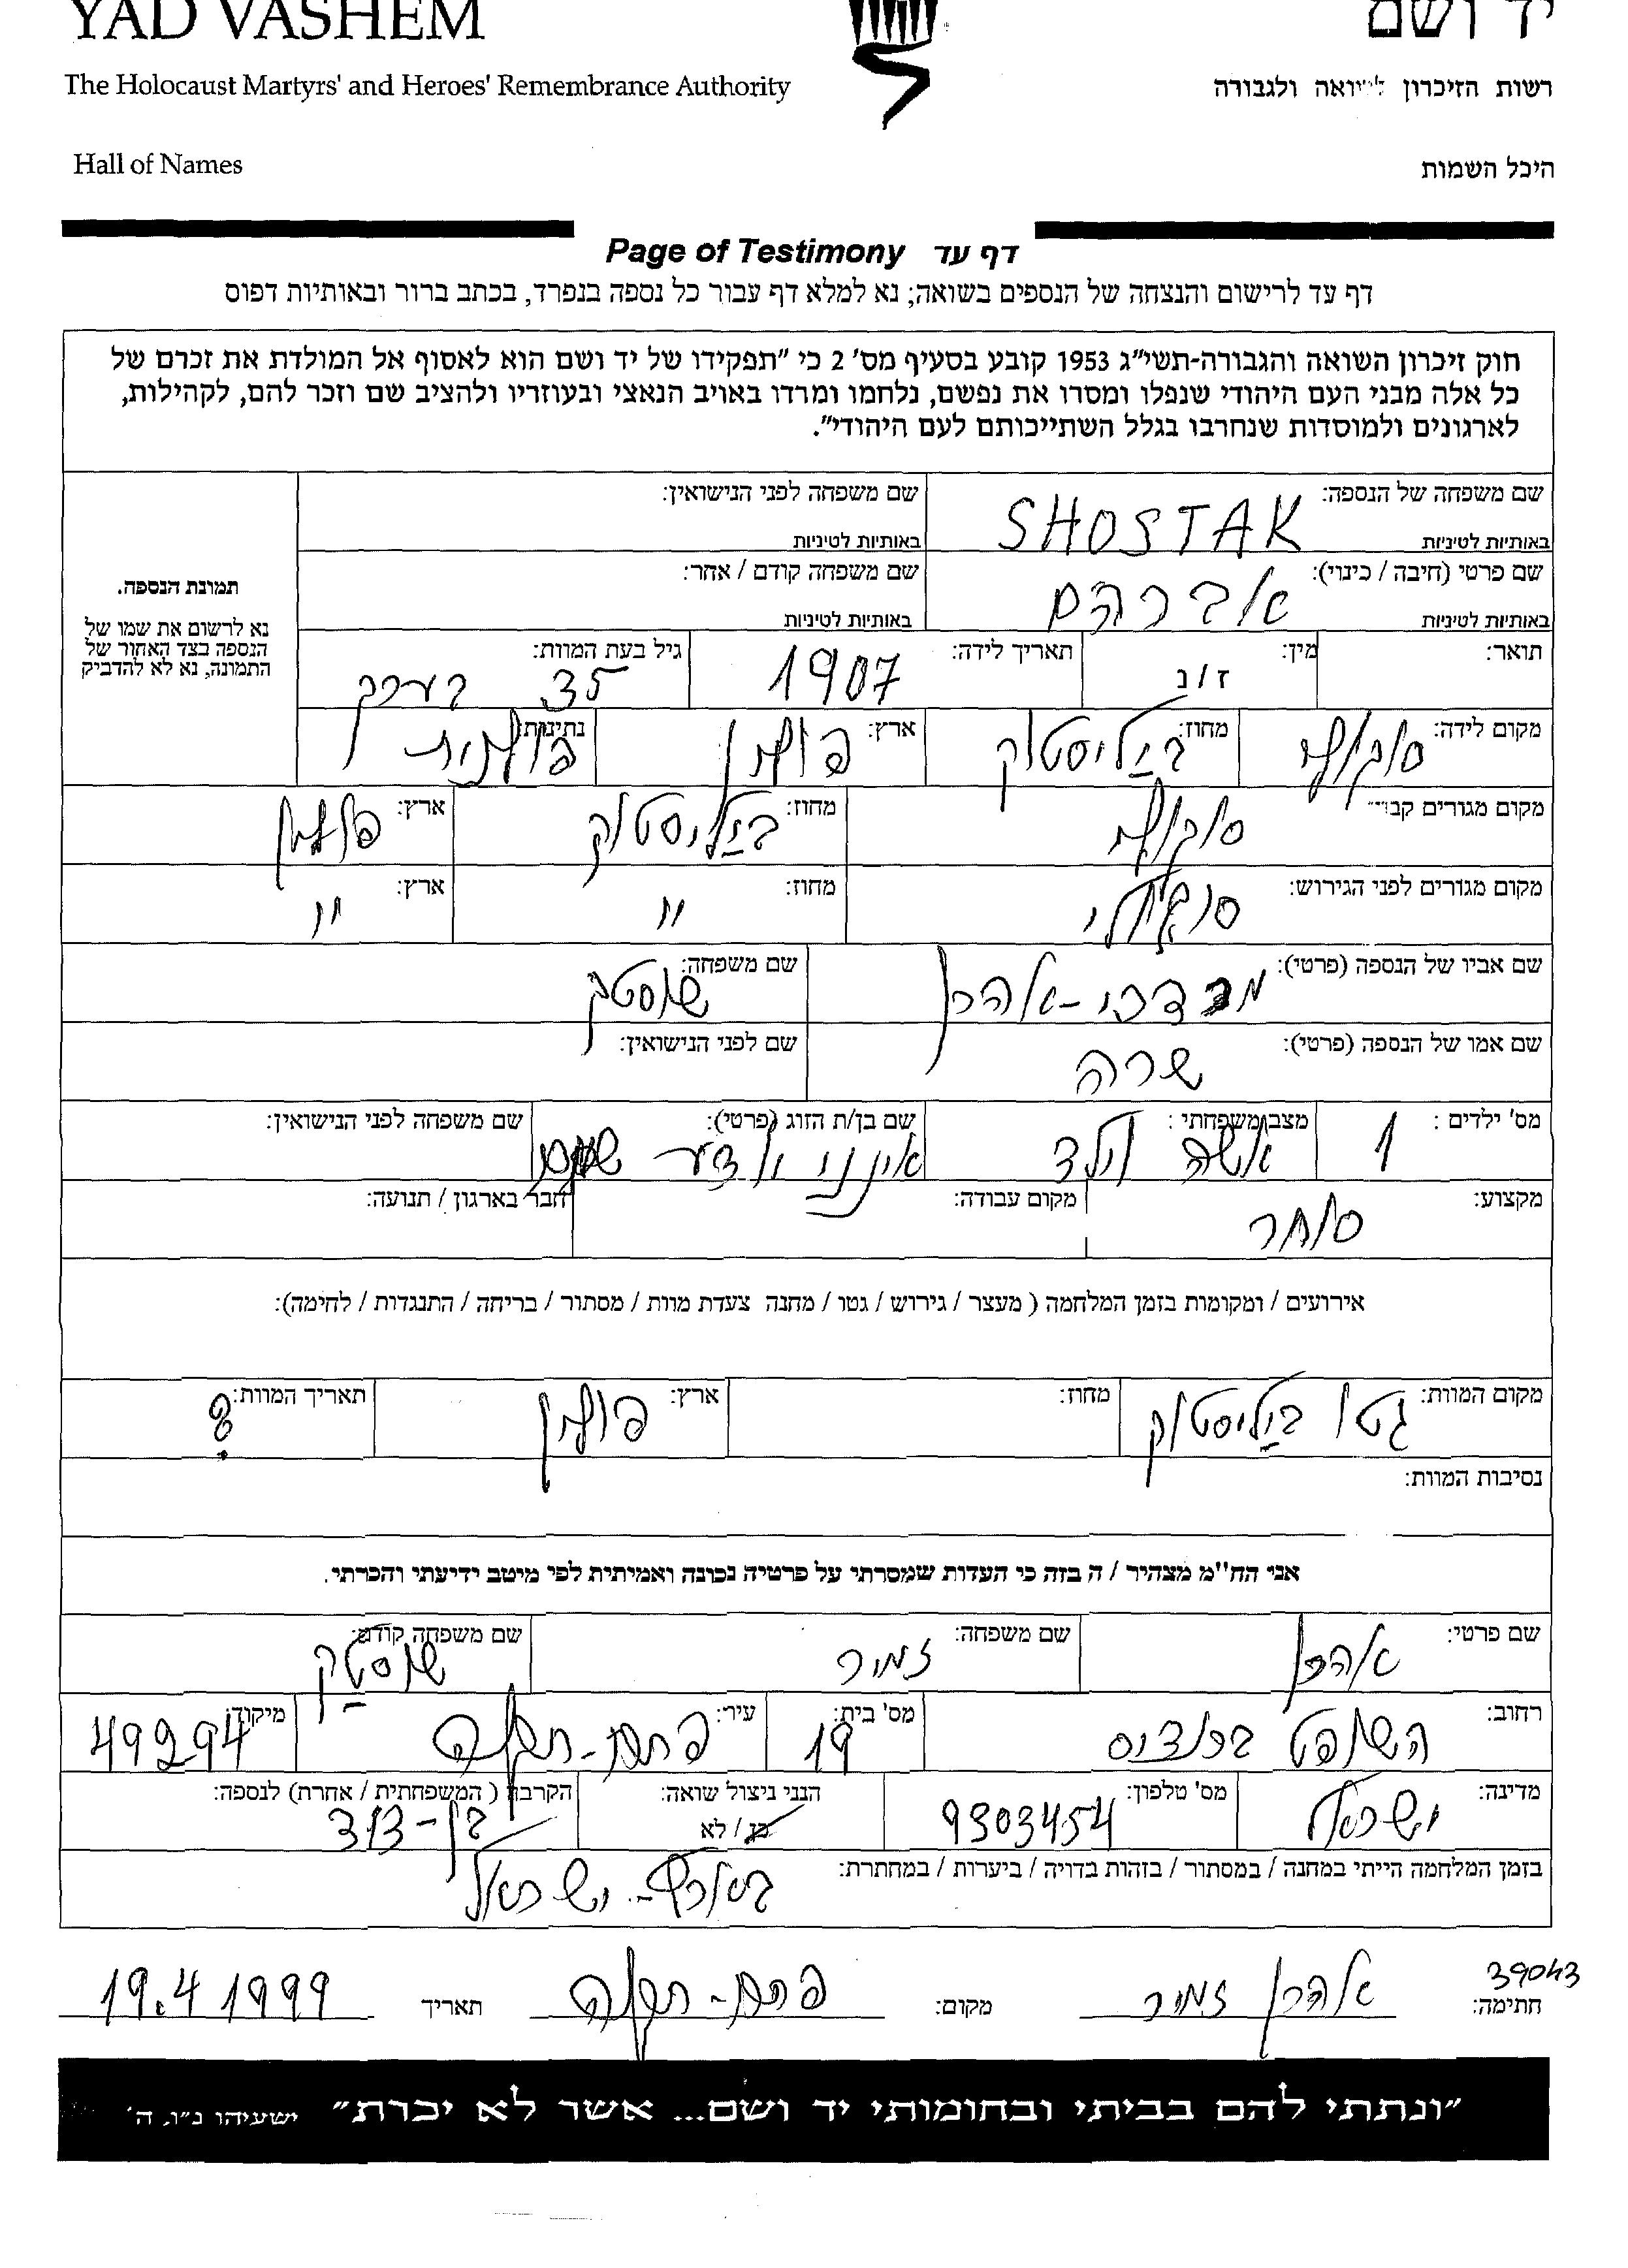 YAD VASHEM
יד ושם
The Holocaust Martyrs' and Heroes' Remembrance Authority
רשות הזיכרון לשואה ולגבורה
Hall of Names
היכל השמות
Page of Testimony דף עד
דף עד לרישום והנצחה של הנספים בשואה; נא למלא דף עבור כל נספה בנפרד, בכתב ברור ובאותיות דפוס
חוק זיכרון השואה והגבורה-תשי"ג 1953 קובע בסעיף מס' 2 כי "תפקידו של יד ושם הוא לאסוף אל המולדת את זכרם של
כל אלה מבני העם היהודי שנפלו ומסרו את נפשם, נלחמו ומרדו באויב הנאצי ובעוזריו ולהציב שם וזכר להם, לקהילות,
לארגונים ולמוסדות שנחרבו בגלל השתייכותם לעם היהודי".
שם משפחה של הנספה: שם משפחה לפני הנישואין:
SHOSTAK
באותיות לטיניות באותיות לטיניות
שם פרטי (חיבה / כינוי): אברהם שם משפחה קודם / אחר:
באותיות לטיניות באותיות לטיניות
תמונת הנספה.
נא לרשום את שמו של
הנספה בצד האחור של
התמונה, נא לא להדביק
תואר: מין: ז/נ תאריך לידה: 1907 גיל בעת המוות: 35 בערך
מקום לידה: מחוז: ביליסטוק ארץ: פולין נתינות: פולנית
מקום מגורים קבוע: מחוז: ביליסטוק ארץ: פולין
מקום מגורים לפני הגירוש: מחוז: " ארץ: "
שם אביו של הנספה (פרטי): מרדכי-אהרן שם משפחה: שוסטק
שם אמו של הנספה (פרטי): שרה שם לפני הנישואין:
מס' ילדים : 1 מצב משפחתי : אשה וילד שם בן/ת הזוג (פרטי): אינני יודע שם משפחה לפני הנישואין:
מקצוע: סוחר מקום עבודה: חבר בארגון / תנועה:
אירועים / ומקומות בזמן המלחמה ( מעצר / גירוש / גטו / מחנה צעדת מוות / מסתור / בריחה / התנגדות / לחימה):
מקום המוות: גטו ביליסטוק מחוז: ארץ: פולין תאריך המוות: ?
נסיבות המוות:
אני הח"מ מצהיר / ה בזה כי העדות שמסרתי על פרטיה נכונה ואמיתית לפי מיטב ידיעתי והכרתי.
שם פרטי: אהרן שם משפחה: זמיר שם משפחה קודם: שוסטק
רחוב: השופט ברנדיס מס' בית: 19 עיר: פתח-תקוה מיקוד: 49294
מדינה: ישראל מס' טלפון: 9303454 הנני ניצול שואה: כן / לא הקרבה ( המשפחתית / אחרת) לנספה: בן-דוד
בזמן המלחמה הייתי במחנה / במסתור / בזהות בדויה / ביערות / במחתרת: בארץ-ישראל
39043
חתימה: אהרן זמיר מקום: פתח-תקוה תאריך 19.4 1999
"ונתתי להם בביתי ובחומותי יד ושם... אשר לא יכרת" ישעיהו נ"ו, ה'